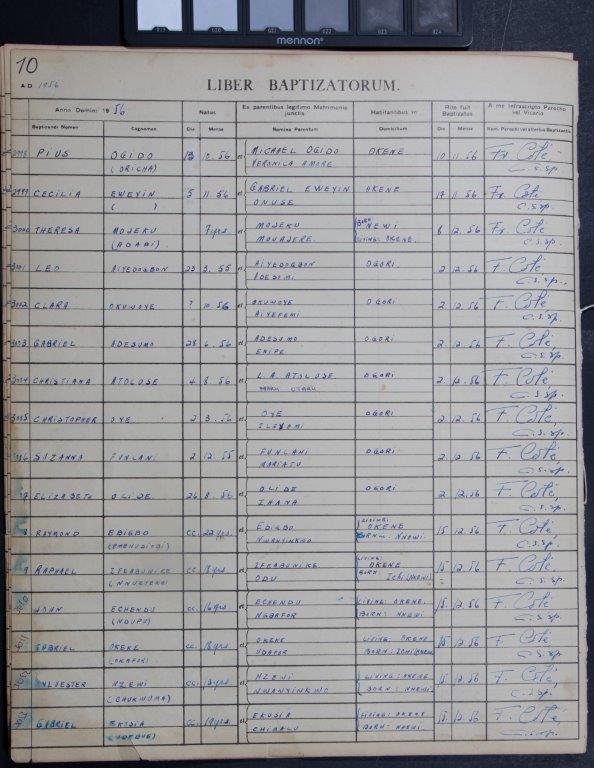 019 020 021 022 023 024
mennon
10
AD 1956
LIBER BAPTIZATORUM.
Anno Domini 1956 Natus Ex parentibus legitimo Matrimonio junctis Habitantibus in Rite fuit Baptizatus A me infrascripto Parocho vel Vicario
Baptizandi Nomen Cognomen Die Mense Nomina Parentum Domicilium Die Mense Nom. Parochi vel alterius Baptizantis
2998 PIUS OGIDO 13 10.56 et MICHAEL OGIDO OKENE 10 11.56 Fr. Coté
(ORICHA) VERONICA AMORE C.S.Sp.
2999 CECILIA EWEYIN 5 11.56 et GABRIEL EWEYIN OKENE 17 11 56 Fr. Coté
( ) ONUSE C.S.Sp.
3000 THERESA MOJEKU 7yrs. et MOJEKU BORN NEWI 8 12.56 Fr. Coté
(ADABI) MOUAJERE. LIVING: OKENE. C.S.Sp.
3001 LEO AIYEDOGBON 23 3.55 et AIYEDOGBON OGORI. 2 12.56 F. Coté,
ADESOMI C.S.Sp.
3002 CLARA OKUWOYE ? 10.56 et OKUWOYE OGORI 2 12.56 F. Coté,
AIYEFEMI C.S.Sp.
3003 GABRIEL ADESUMO 28 6.56 et ADESUMO OGORI 2 12.56 F. Coté,
ENIPE C.S.Sp.
3004 CHRISTIANA ATOLOSE 4 8.56 et L.A. ATOLOSE OGORI 2. 12.56 F. Coté,
C.S.Sp.
3005 CHRISTOPHER OYE 2 3.56 et OYE OGORI 2. 12.56 F. Coté,
C.S.Sp.
3006 SUZANNA FUNLANI 2 12.55 et FUNLANI OGORI 2. 12.56 F. Coté,
MARIATU C.S.Sp.
7 ELIZABETH OLIDE 26 8.56 et OLIDE OGORI 2 12.56 F. Coté,
INANA C.S.Sp.
8 RAYMOND EBIGBO cc. 22yrs. et EBIGBO LIVING: OKENE 15 12.56 F. Coté,
NWANYINKWO BORN: NNEWI C.S.Sp.
9 RAPHAEL IFEABUNIKE cc. 18yrs. et IFEABUNIKE. LIVING: OKENE 15 12.56 F. Coté,
ODU BORN: ICHI (NNEWI) C.S.Sp.
3010 JOHN ECHENDU cc. 16yrs et ECHENDU LIVING: OKENE. 15 12.56 F. Coté,
(NDUPU) NGBAFOR BORN: NNEWI C.S.Sp.
3011 GABRIEL OKEKE cc. 18yrs et OKEKE LIVING: OKENE 15 12.56 F. Coté,
(OKAFOR) UDAFOR BORN: ICHI (NNEWI) C.S.Sp.
SYLVESTER NZEWI cc. 13yrs et NZEWI LIVING: OKENE 15 12.56 F. Coté,
(CHUKWUMA) NWANYINKWO BORN: NNEWI C.S.Sp.
GABRIEL EKUSIA cc. 19yrs. et EKUSIA LIVING: OKENE 15 12.56 F. Coté
CHINALU BORN: NNEWI. C.S.Sp.